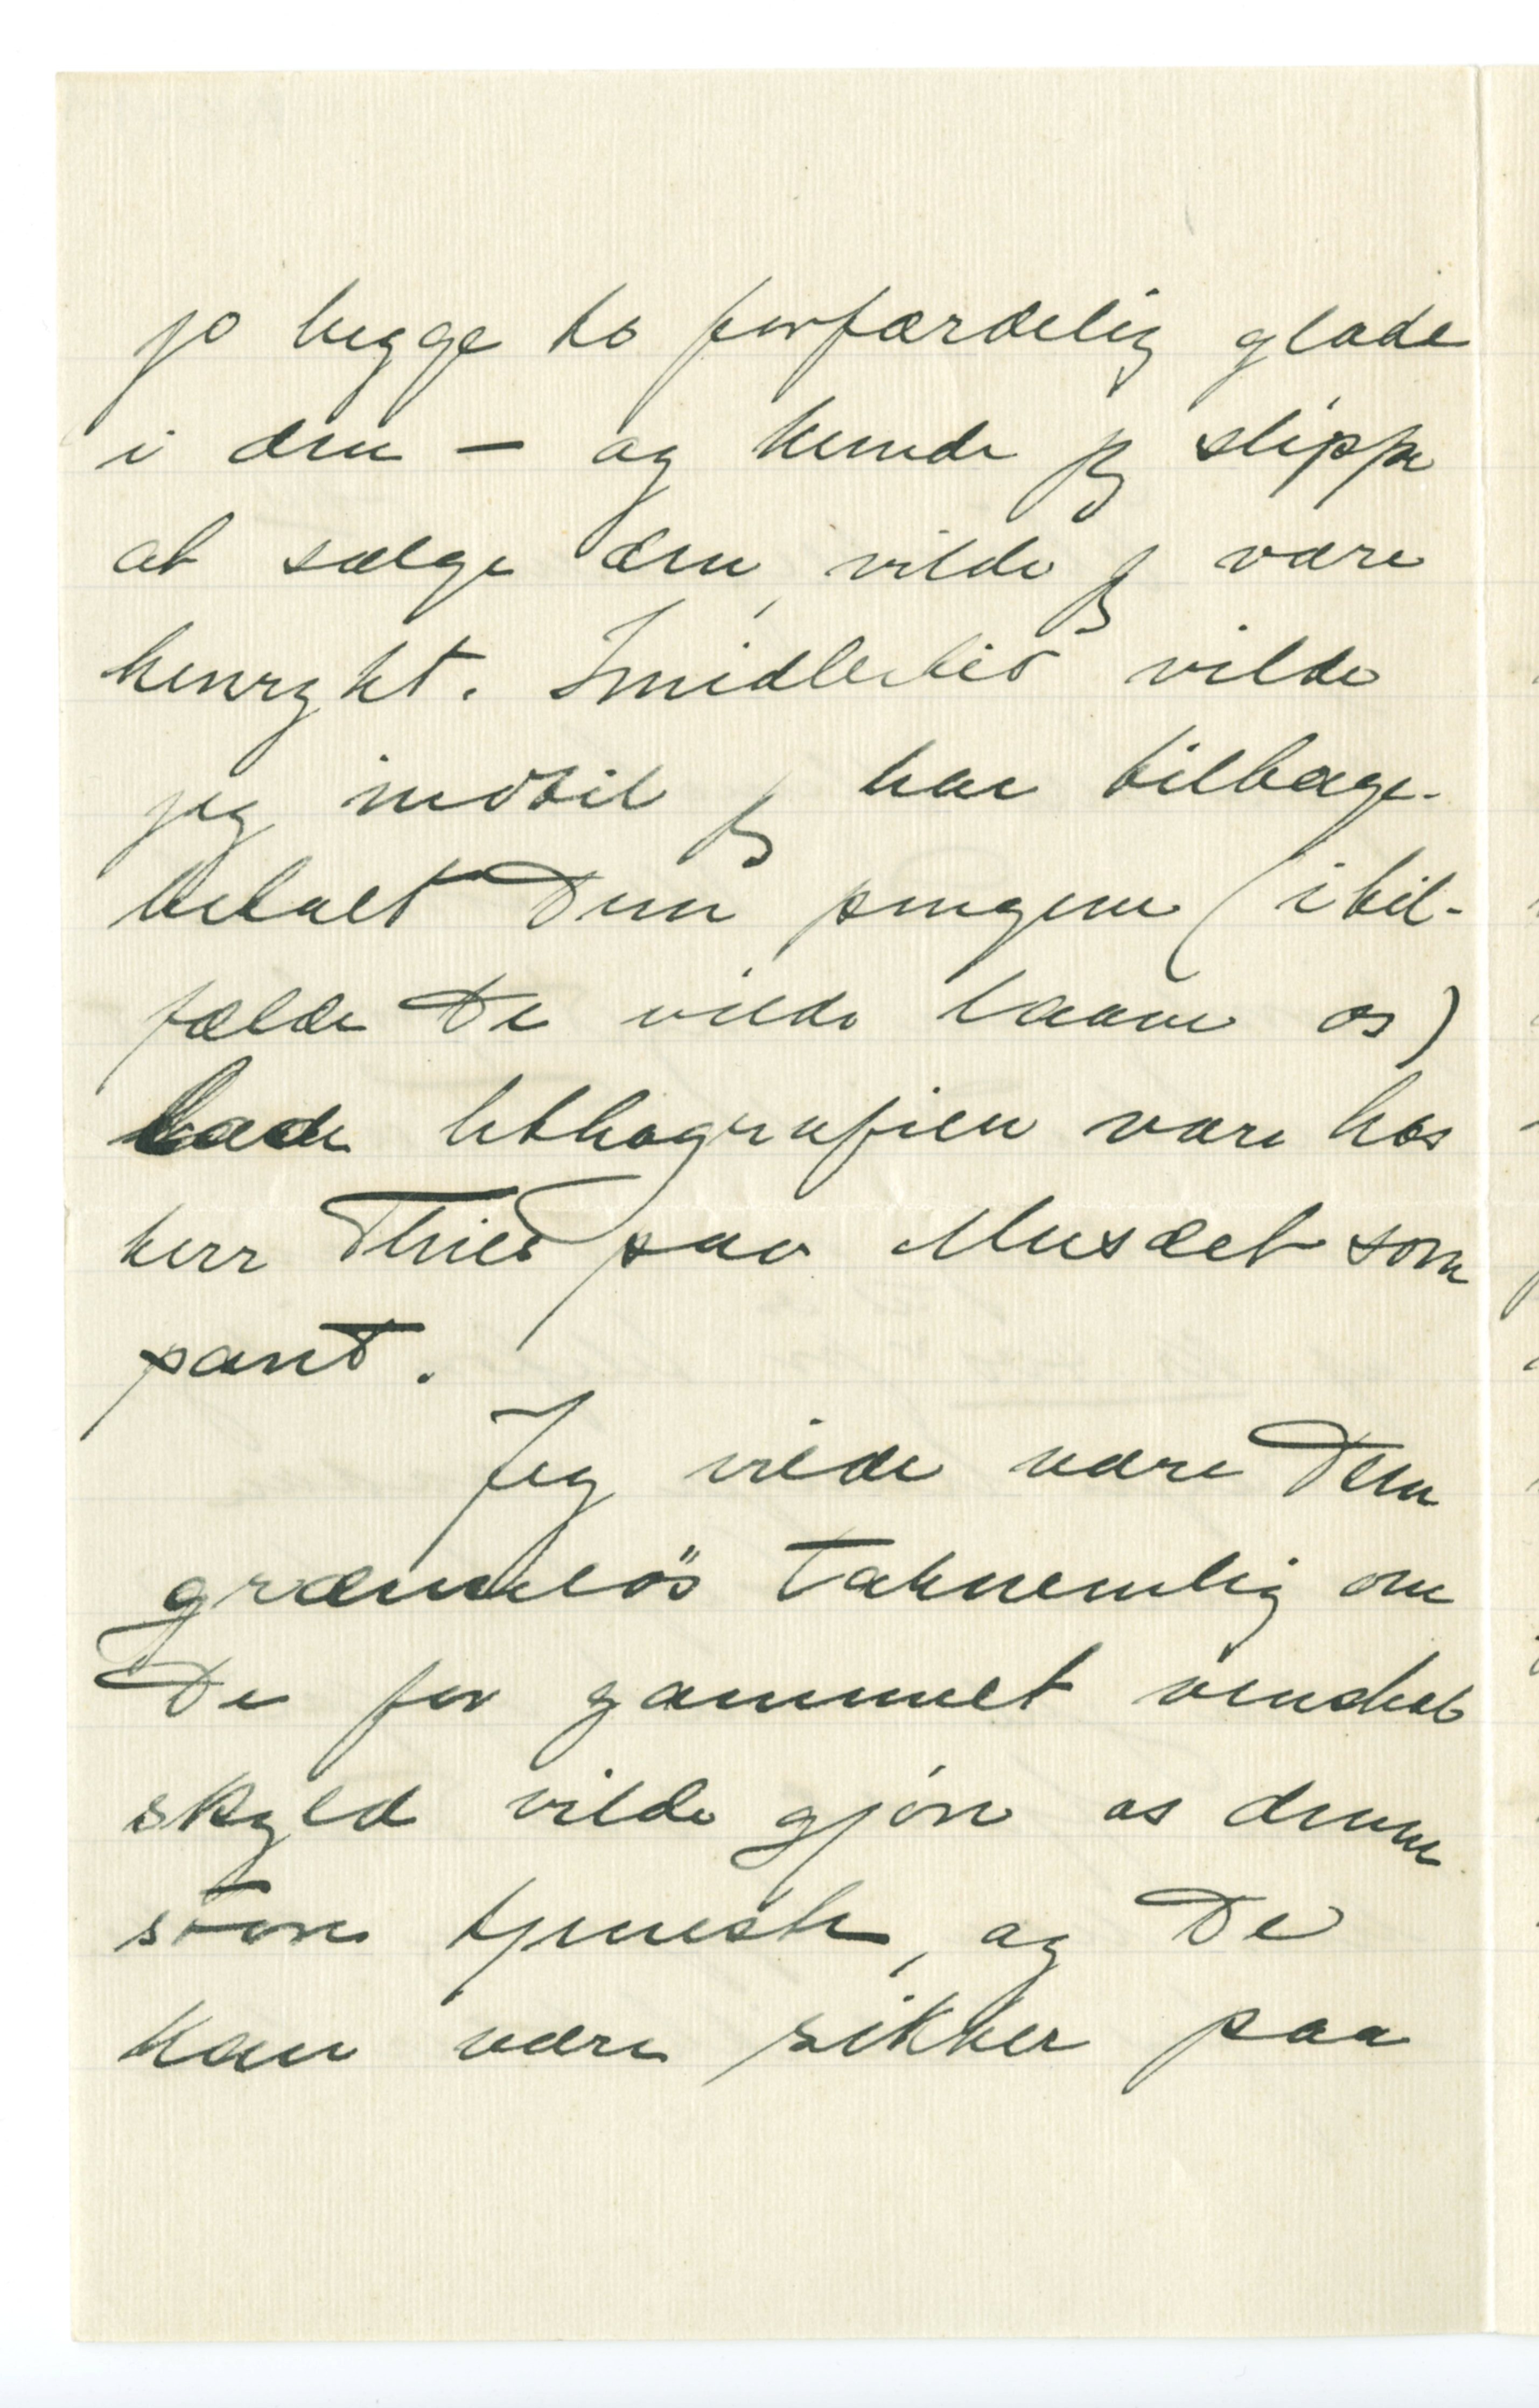 jo begge to forfærdelig glade
i den – og kunde jeg slippe
at sælge den, vilde jeg være
henrykt. Imidlertid vilde
jeg indtil jeg har tilbage-
betalt Dem pengene (i til-
fælde De vilde laane os)
lade lithografien være hos
herr Thiis paa Musæet som
pant.
Jeg vilde være Dem
grændeløs taknemlig om
De for gammelt venskab
skyld vilde gjöre os denne
store tjeneste, og De
kan være sikker paa